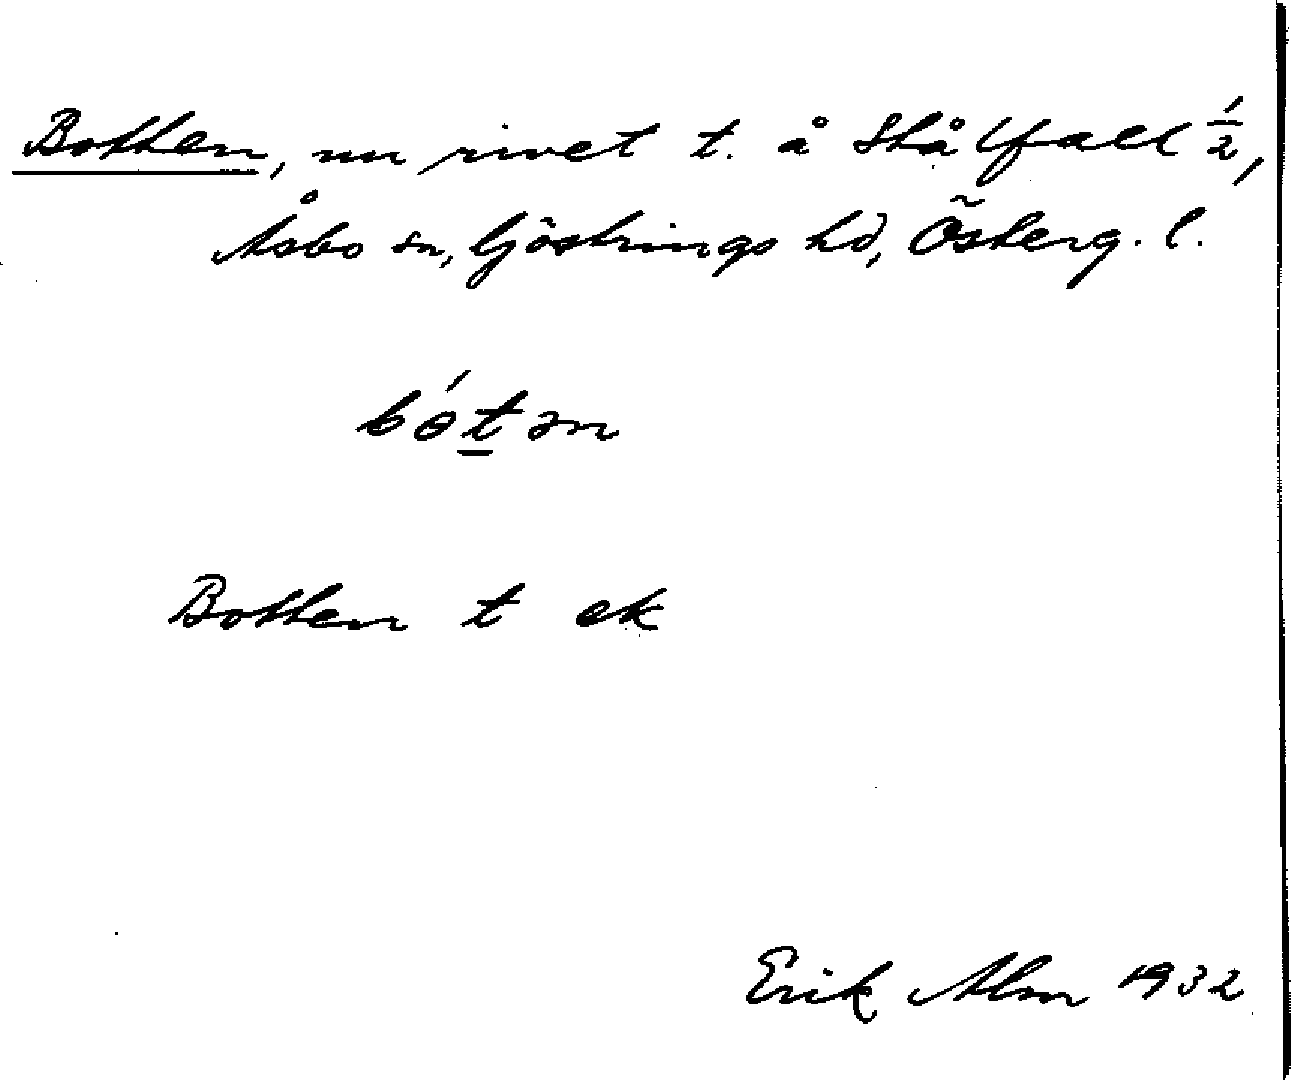 Botten, nu rivet t. å Stålfall 1/2,
Åsbo sn, Göstrings hd, Österg. l.
bót̲ən
Botten t ek
Erik Alm 1932